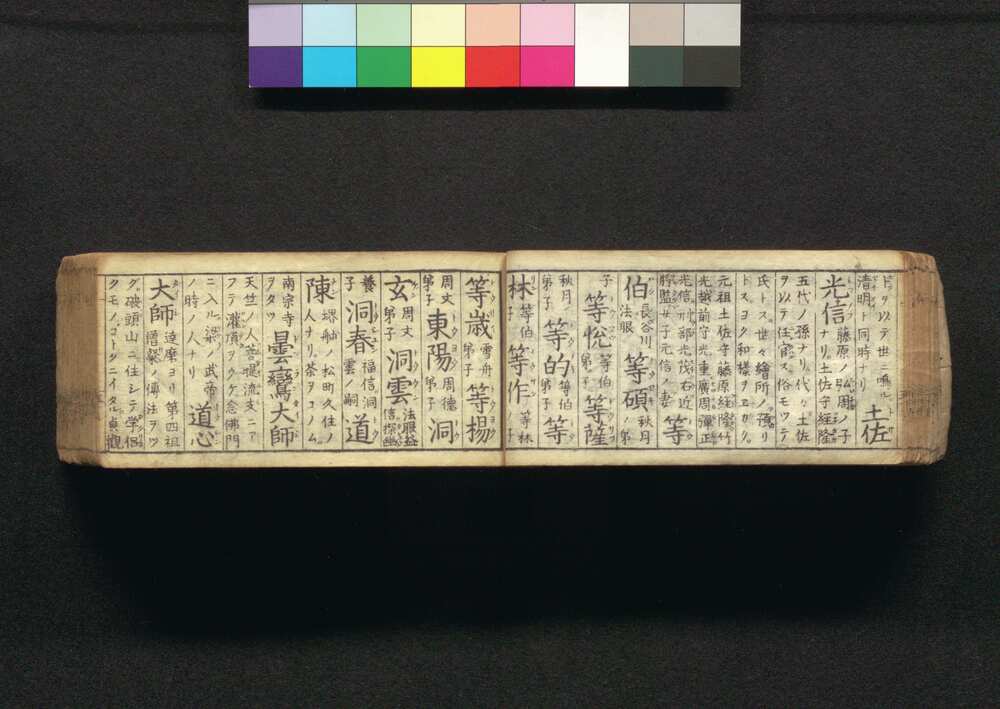 ドヲ以テ世ニ鳴ル 土佐
清明ト同時ナリ
光信 藤原ノ弘周ノ子
ナリ土佐守経隆
五代ノ孫ナリ代々土佐
ヲ以テ任官ス俗モツテ
氏トス世々繪所ノ預リ
トスヨク和様ヲエカク
元祖土佐守藤原経隆
光越前守光重廣周彈正
光信刑部光茂右近 等
將監女子元信ノ妻
伯 長谷川 等碩 秋月
法眼 ノ弟
子 等悦 等伯 等薩
弟子
秋月ノ 等的 等伯 等
弟子 弟子
林 等伯 等作 等林
子 ノ子
等歳 雪舟 等楊
弟子
周文 東陽 周德 洞
弟子 弟子
玄 周文 洞雲 法眼益
弟子 信探幽
養 洞春 福信洞 道
子 雲ノ嗣
陳 堺舳ノ松町久住ノ
人ナリ茶ヲコノム
南宗寺 曇鸞大師
ヲタツ
天竺ノ人菩提流支ニア
フテ灌頂ヲウケ念佛門
ニ入ル梁ノ武帝 道心
ノ時ノ人ナリ
大師 達磨ヨリ第四祖
僧璨ノ傳法ヲツ
グ破頭山ニ住シテ学侶
クモノコトクニイタル貞觀